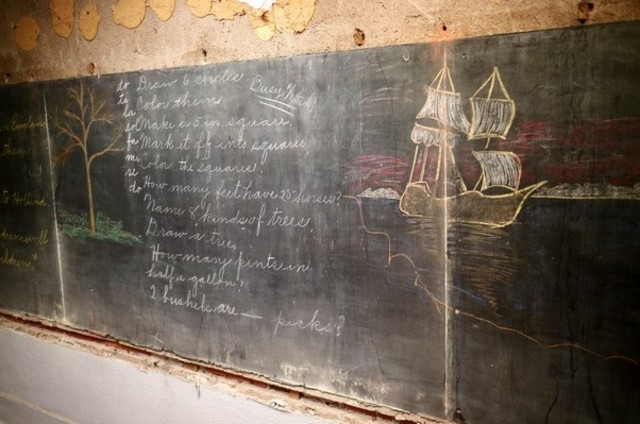 to Holland
"
do Draw 6 circles
ti Color them
la
sol Make a 5 in. square.
fa Mark it off into squares
mi Color the squares.
re
do How many feet have 20 horses?
Name 8 kinds of trees.
Draw a tree.
How many pints in
half a gallon?
2 bushels are — picks?
Busy Work